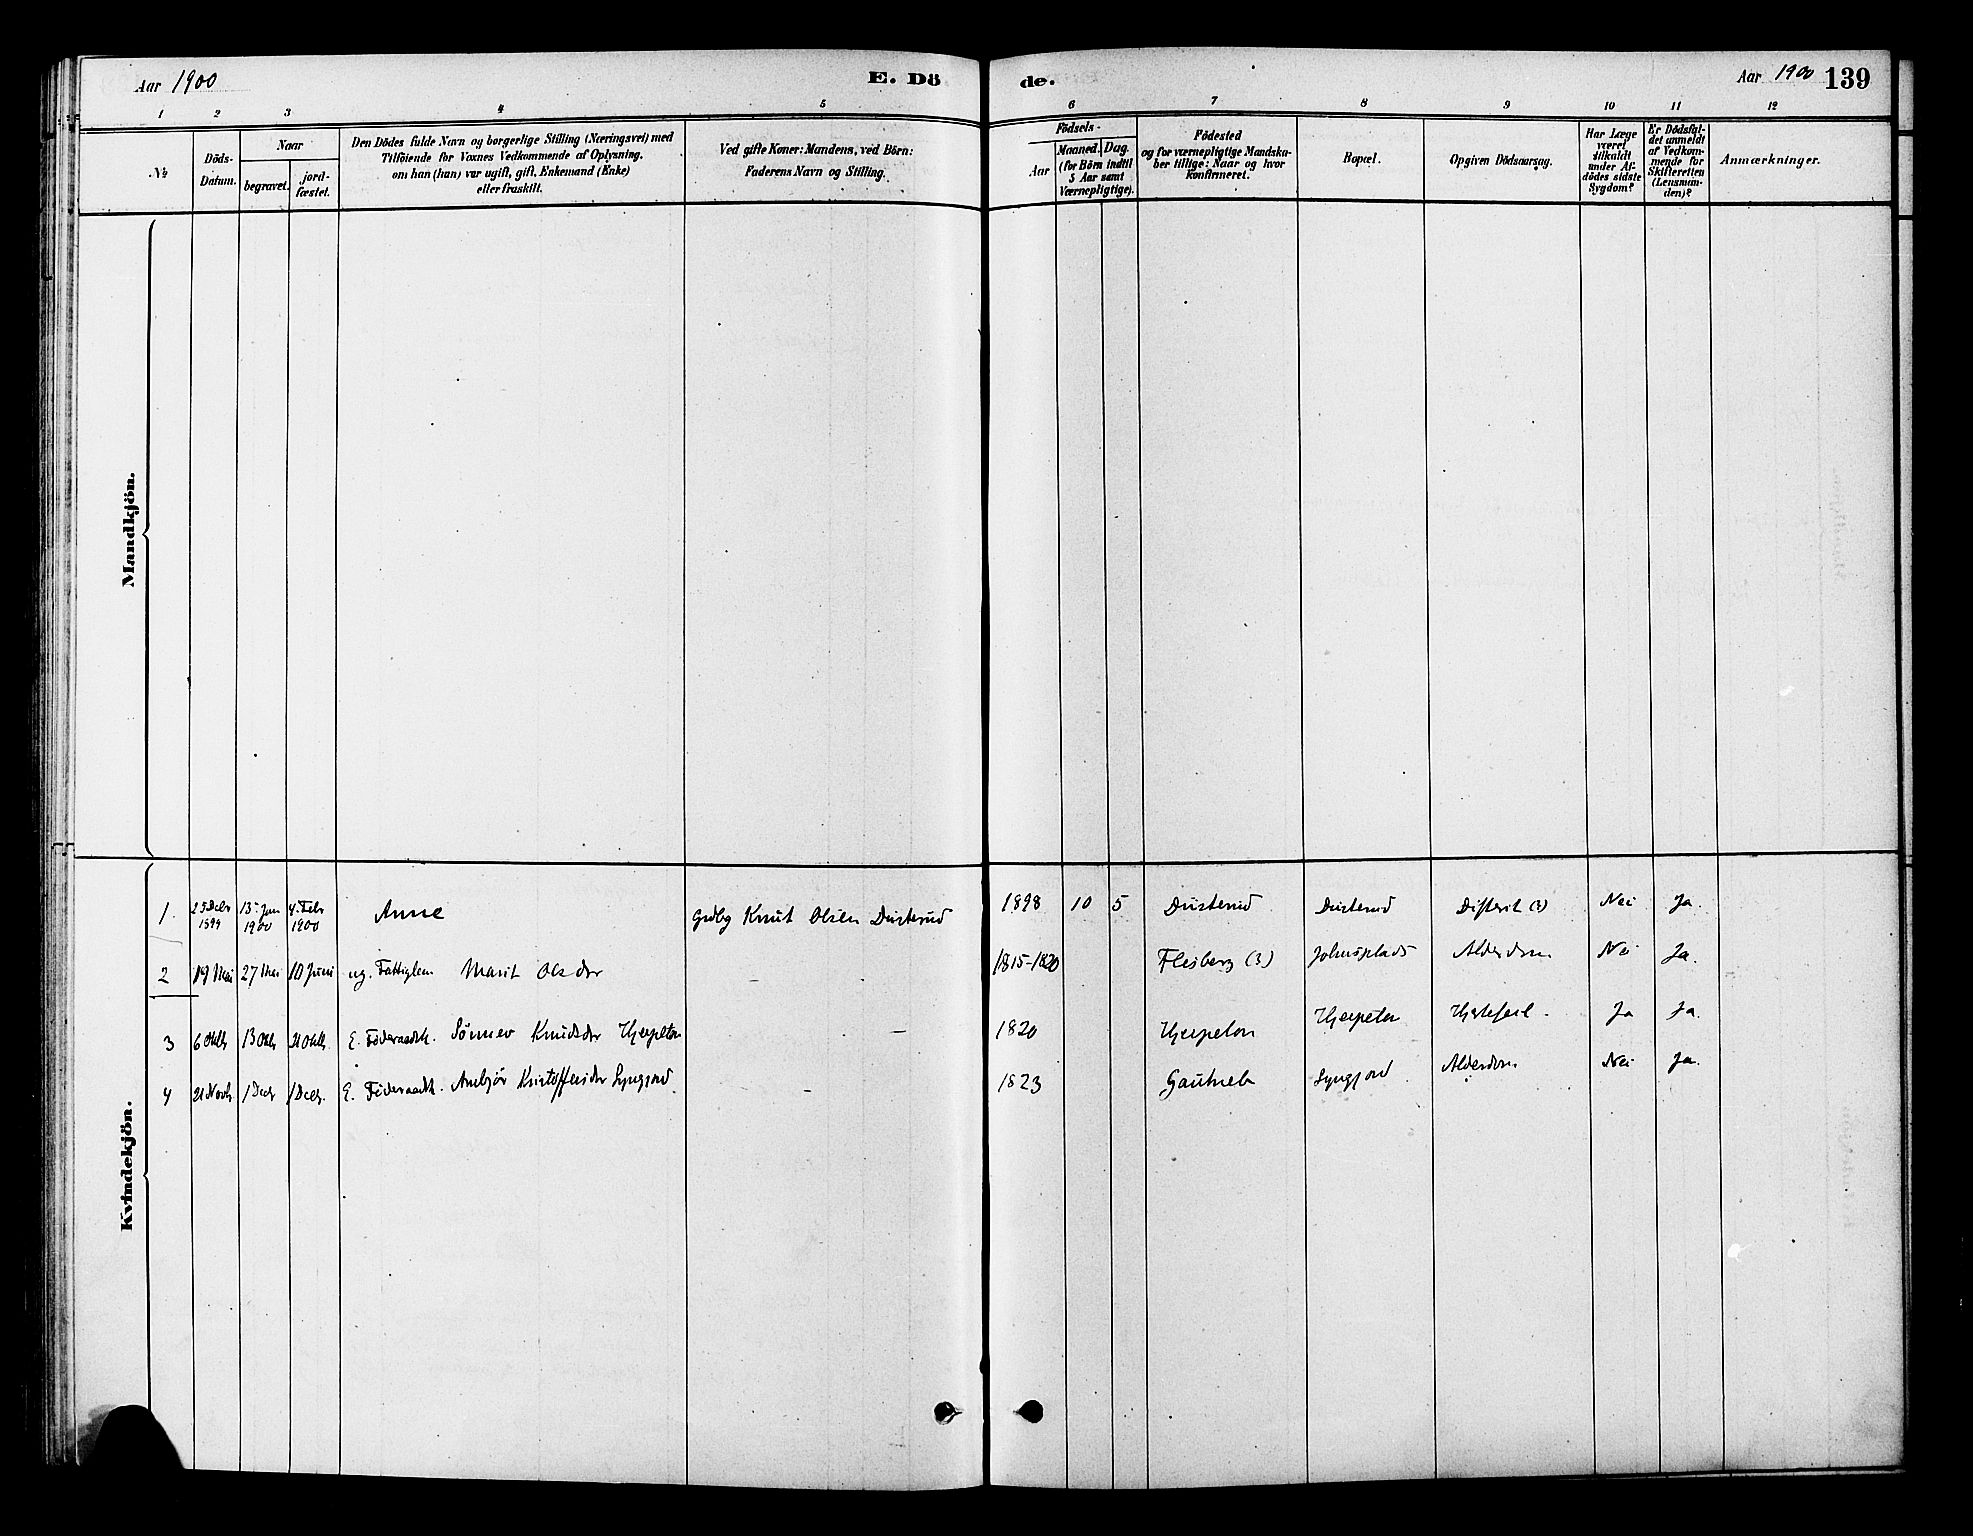 Aar 1900
E. Dö
de.
Aar 1900 139
1 2 3 4 5 6 7 8 9 10 11 12
№
Döds-
Datum.
Naar
begravet.
jord-
fæstet.
Den Dödes fulde Navn og borgerlige Stilling (Næringsvei) med
Tilföiende for Voxnes Vedkommende af Oplysning,
om han (hun) var ugift, gift, Enkemand (Enke)
eller fraskilt.
Ved gifte Koner: Mandens, ved Börn:
Faderens Navn og Stilling.
Födsels-
Aar
Maaned. Dag.
(for Börn indtil
5 Aar samt
Værnepligtige).
Födested
og for værnepligtige Mandska-
ber tillige: Naar og hvor
Konfirmeret.
Bopæl.
Opgiven Dödsaarsag.
Har Læge
været
tilkaldt
under Af-
dödes sidste
Sygdom?
Er Dödsfal-
det anmeldt
af Vedkom-
mende for
Skifteretten
(Lensman-
den)?
Anmærkninger.
Mandkjön.
Kvindekjön.
1. 23 Decbr 1899 13 Jan 1900 4. Febr 1900 Anne Grdbg Knut Olsen Dusterud 1898 10 5 Dusterud Dusterud Difterit (?) Nei Ja.
2 19 Mai 27 Mai 10 Juni ug. Fattiglem Marit Olsdtr - 1815-1820 Flesberg (?) Johnsplads Alderdom Nei Ja.
3 6 Oktbr 13 Oktbr 21 Oktbr E. Föderaadk. Sönnev Knudsdtr Hjerpeton - 1820 Hjerpeton Hjerpeton Hjertefeil. Ja Ja.
4 21 Novb. 1 Decbr 1 Decbr. E. Föderaadk. Anbjör Kristoffersdtr Lyngjord - 1823 Gautneb Lyngjord Alderdom Nei Ja.